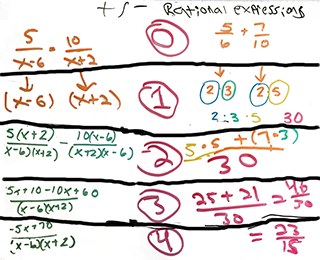 + / - Rational expressions
5/(x-6) - 10/(x+2)
0
5/6 + 7/10
(x-6) (x+2)
1
2 · 3 2 · 5
2 · 3 · 5 30
5(x+2)/((x-6)(x+2)) - 10(x-6)/((x+2)(x-6))
2
(5·5 + (7·3))/30
(5x+10-10x+60)/((x-6)(x+2))
3
(25+21)/30 = 46/30
(-5x+70)/((x-6)(x+2))
4
= 23/15